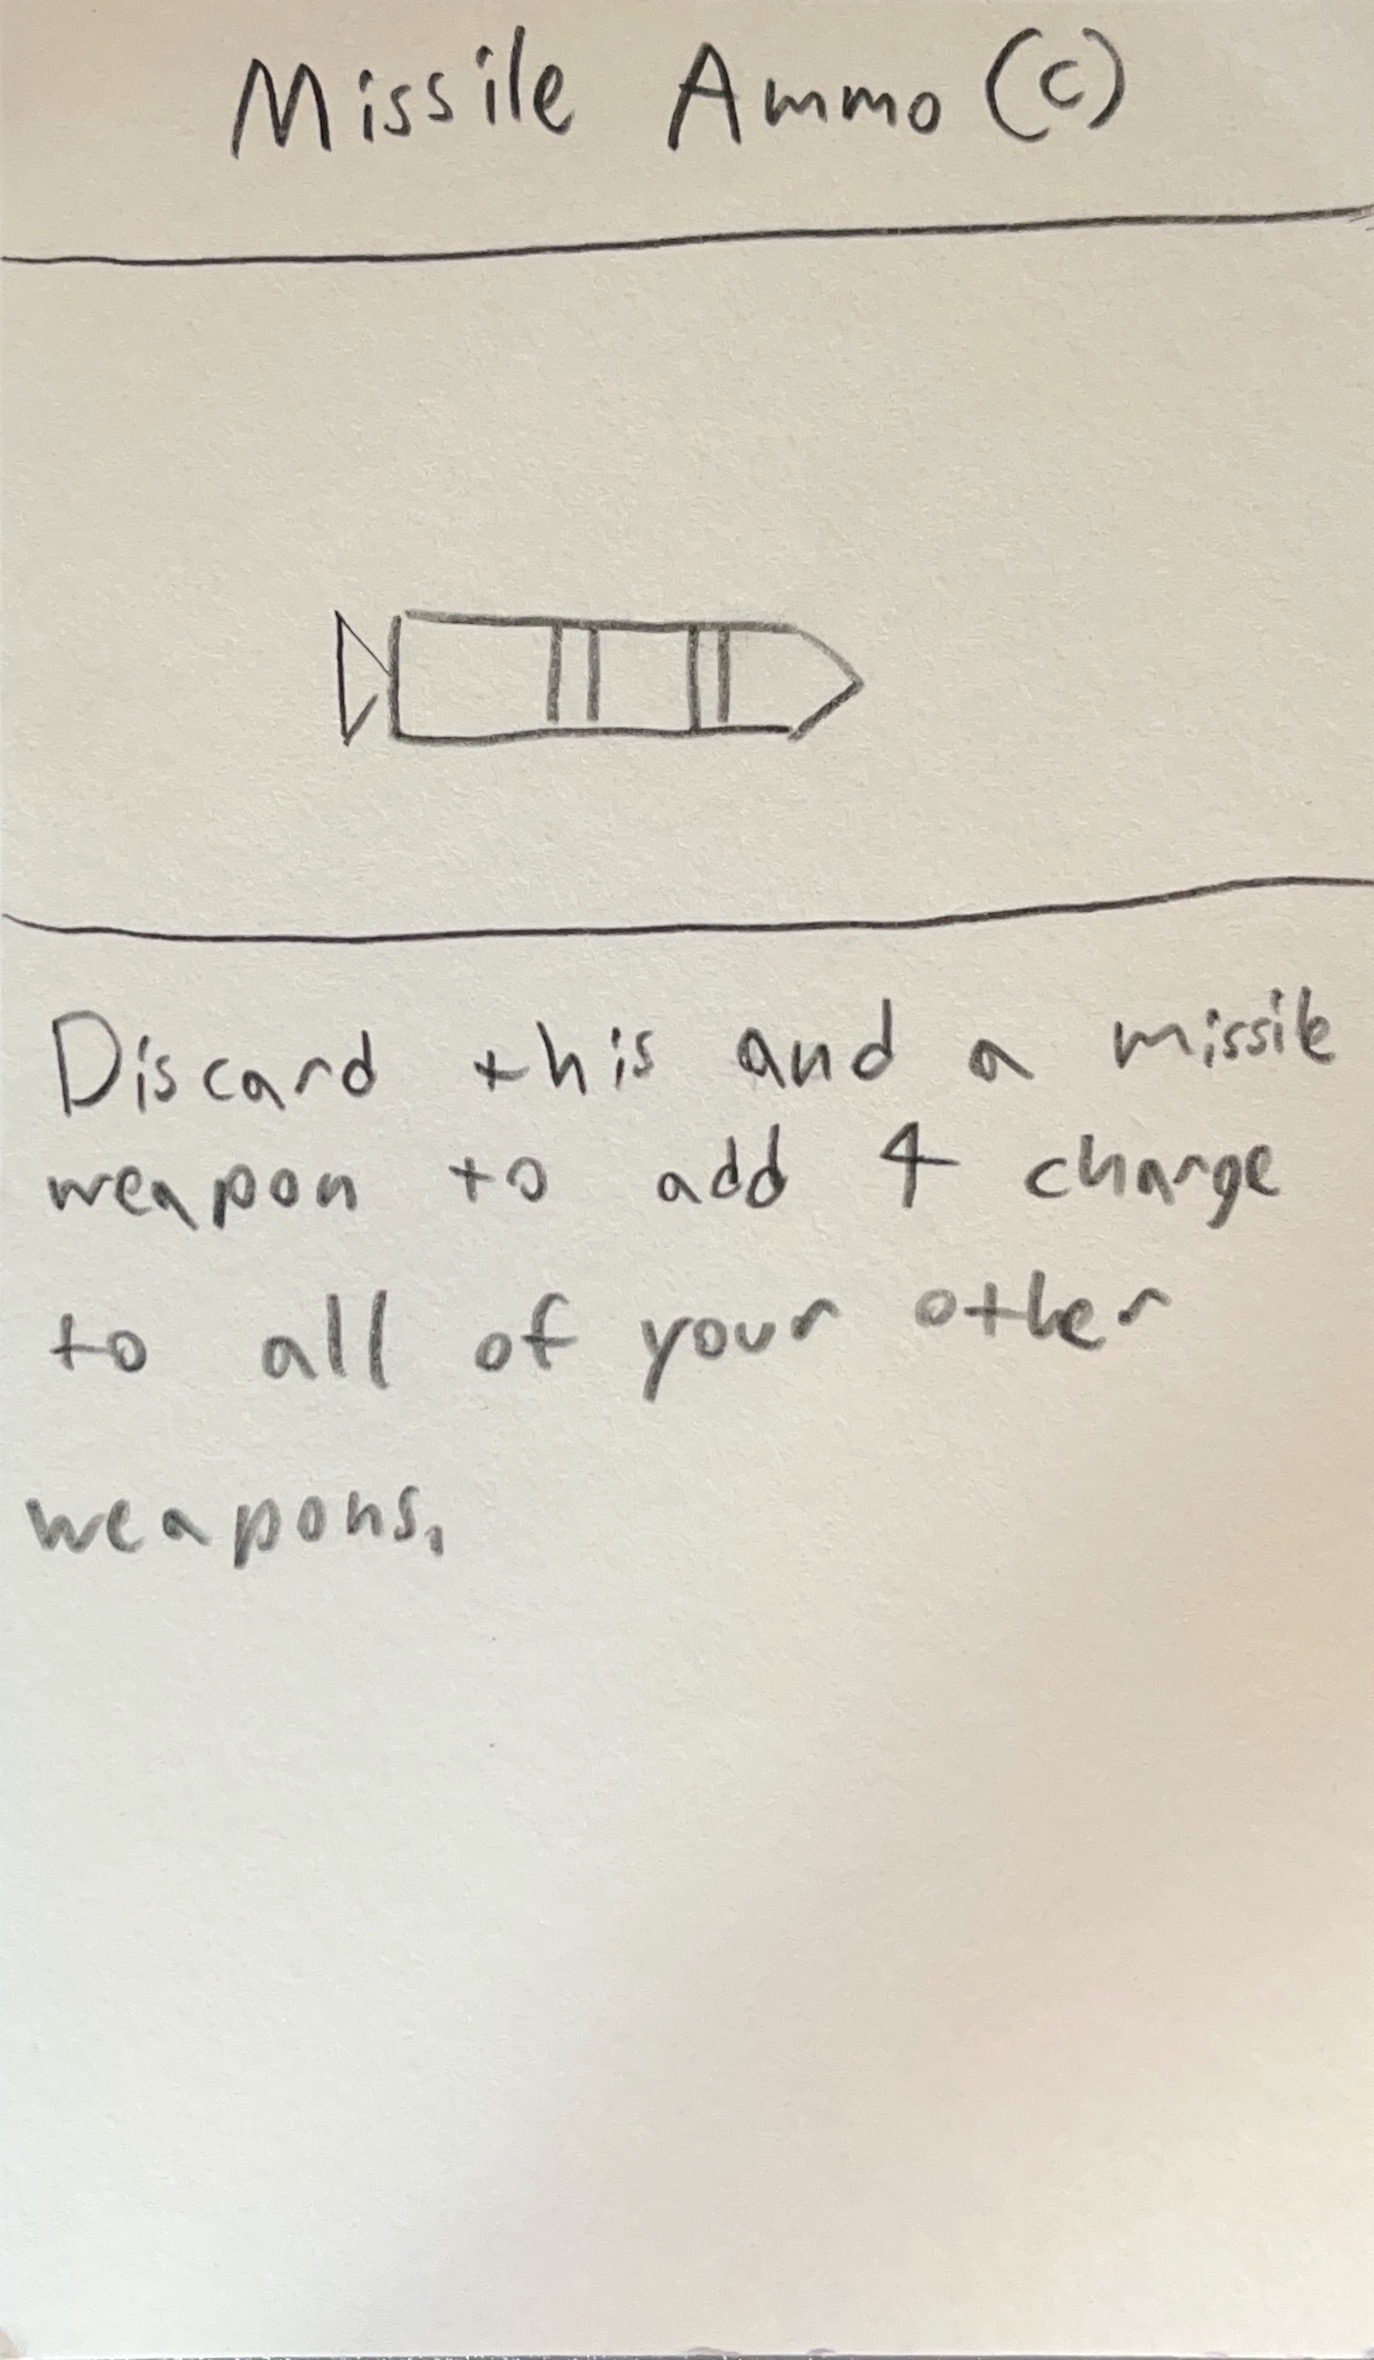 Missile Ammo (C)
Discard this and a missile
weapon to add 4 charge
to all of your other
weapons.